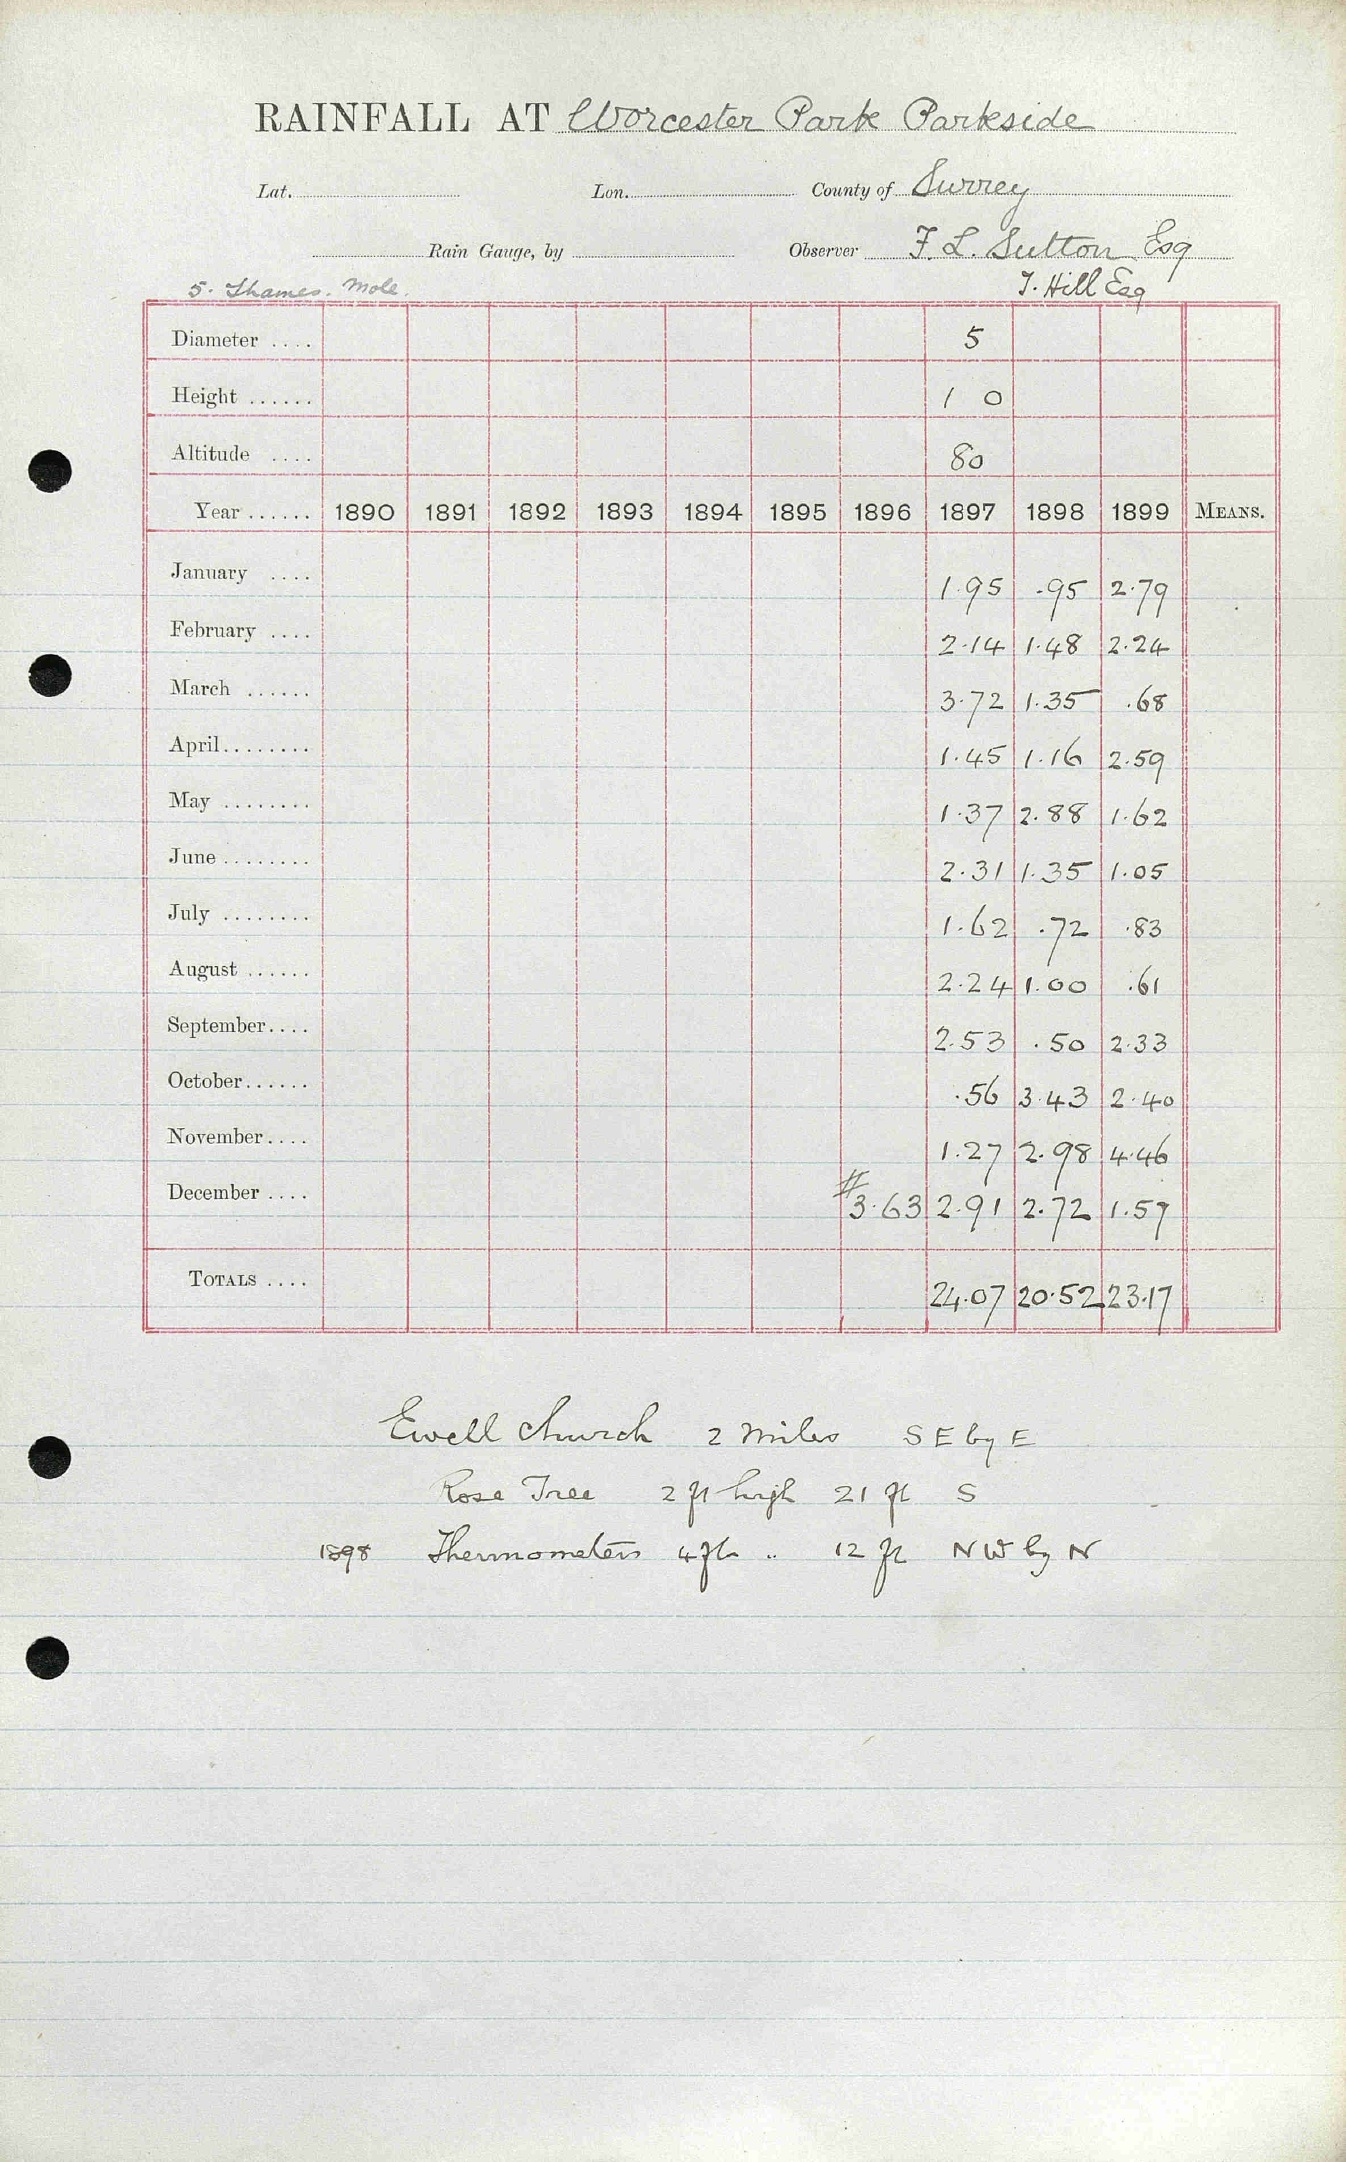 RAINFALL AT Worcester Park Parkside
Lat. Lon. County of Surrey
Rain Gauge, by Observer F. L. Sutton Esq
5. Thames. Mole. T. Hill Esq
Diameter .... 5
Height ...... 1 0
Altitude .... 80
Year ...... 1890 1891 1892 1893 1894 1895 1896 1897 1898 1899 MEANS.
January .... 1.95 .95 2.79
February .... 2.14 1.48 2.24
March ...... 3.72 1.35 .68
April........ 1.45 1.16 2.59
May ........ 1.37 2.88 1.62
June ........ 2.31 1.35 1.05
July ........ 1.62 .72 .83
August ...... 2.24 1.00 .61
September.... 2.53 .50 2.33
October...... .56 3.43 2.40
November.... 1.27 2.98 4.46
December .... #3.63 2.91 2.72 1.57
TOTALS .... 24.07 20.52 23.17
Ewell Church 2 miles S E by E
Rose Tree 2 ft high 21 ft S
1898 Thermometers 4 ft " 12 ft N W by N